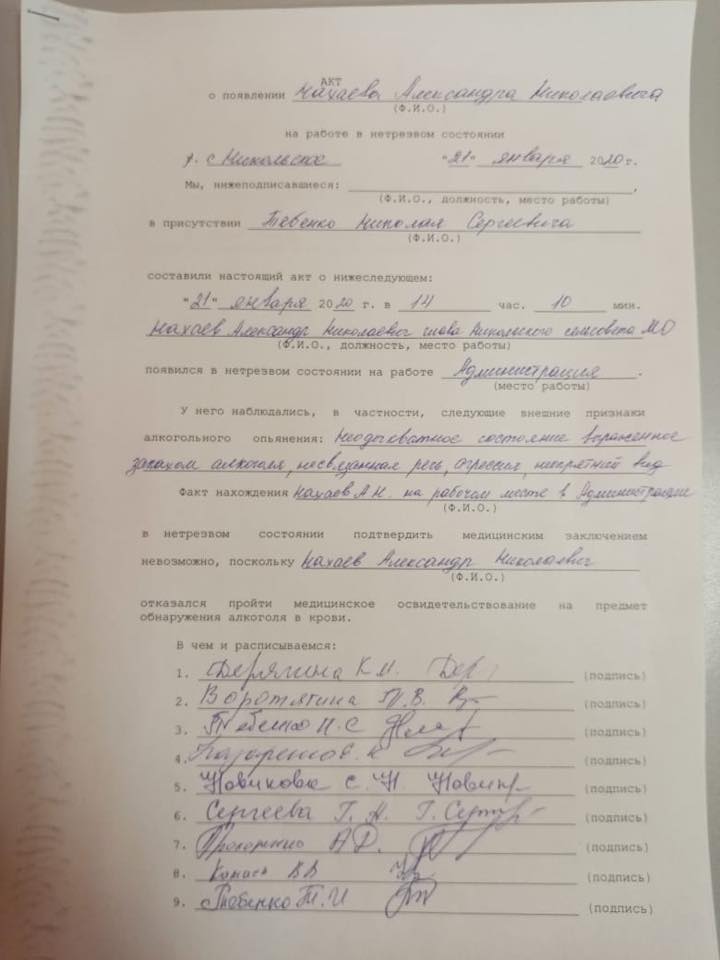 АКТ
о появлении Нахаева Александра Николаевича
(Ф.И.О.)
на работе в нетрезвом состоянии
с Никольское "21" января 2020 г.
Мы, нижеподписавшиеся: ,
(Ф.И.О., должность, место работы)
в присутствии Тебенко Николая Сергеевича
(Ф.И.О.)
составили настоящий акт о нижеследующем:
"21" января 2020 г. в 14 час. 10 мин.
Нахаев Александр Николаевич глава Никольского сельсовета МО
(Ф.И.О., должность, место работы)
появился в нетрезвом состоянии на работе Администрация.
(место работы)
У него наблюдались, в частности, следующие внешние признаки
алкогольного опьянения: состояние
запахом алкоголя, несвязанная речь, агрессия, вид
Факт нахождения Нахаев А.Н. на рабочем месте в Администрации
(Ф.И.О.)
в нетрезвом состоянии подтвердить медицинским заключением
невозможно, поскольку Нахаев Александр Николаевич
(Ф.И.О.)
отказался пройти медицинское освидетельствование на предмет
обнаружения алкоголя в крови.
В чем и расписываемся:
1. Дерягина К.М. (подпись)
2. Воротягина Т.В. (подпись)
3. Тебенко Н.С (подпись)
4. (подпись)
5. Новикова С.Н. (подпись)
6. Сергеева Г.Н. (подпись)
7. Прокопенко А.Р. (подпись)
8. В.В (подпись)
9. Тебенко Т.И (подпись)